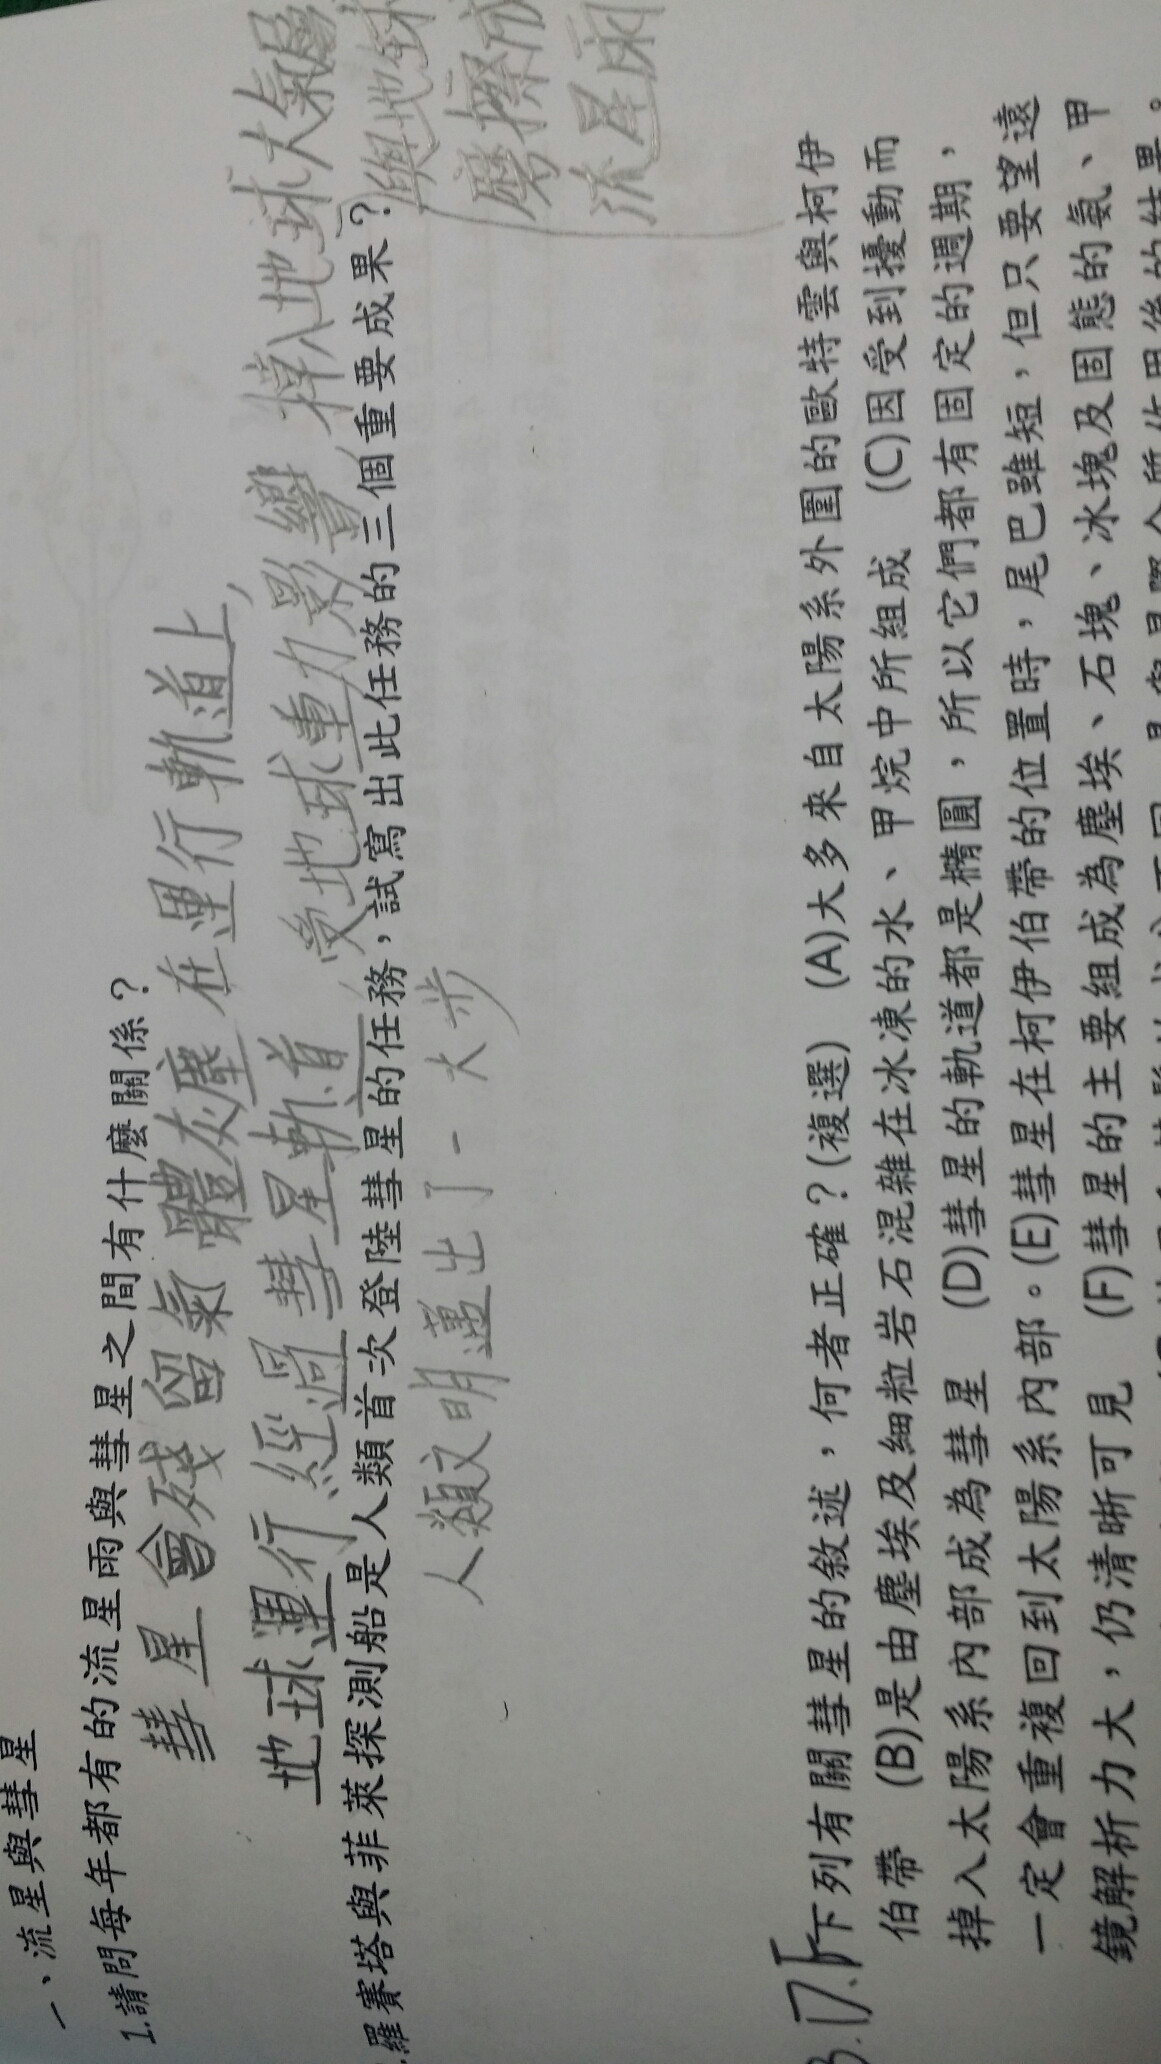 一、流星與彗星
1.請問每年都有的流星雨與彗星之間有什麼關係？
彗星會殘留氣體灰塵在運行軌道上，
地球運行經過彗星軌道，受地球重力影響掉入地球大氣層
與地球
磨擦成
流星雨
.羅賽塔與菲萊探測船是人類首次登陸彗星的任務，試寫出此任務的三個重要成果？
人類文明邁出了一大步
3.
下列有關彗星的敘述，何者正確？(複選) (A)大多來自太陽系外圍的歐特雲與柯伊
伯帶 (B)是由塵埃及細粒岩石混雜在冰凍的水、甲烷中所組成 (C)因受到擾動而
掉入太陽系內部成為彗星 (D)彗星的軌道都是橢圓，所以它們都有固定的週期，
一定會重複回到太陽系內部。(E)彗星在柯伊伯帶的位置時，尾巴雖短，但只要望遠
鏡解析力大，仍清晰可見 (F)彗星的主要組成為塵埃、石塊、冰塊及固態的氨、甲
後的結果。